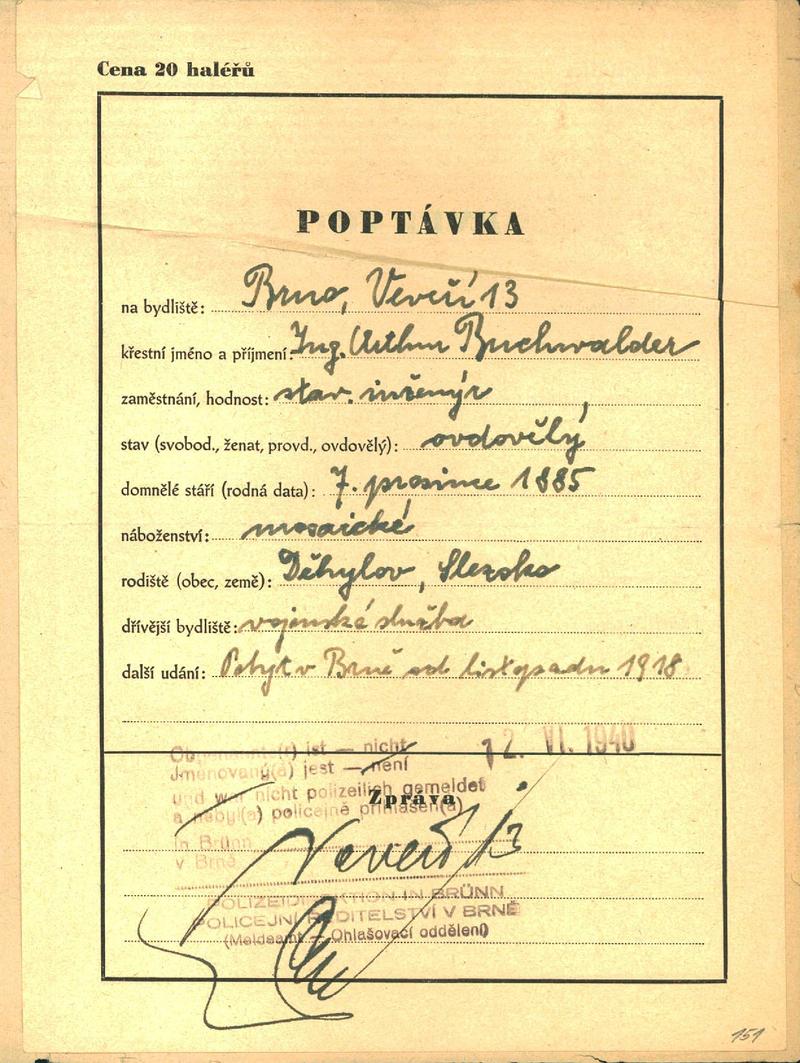 Cena 20 haléřů
POPTÁVKA
na bydliště: Brno, Veveří 13
křestní jméno a příjmení: Ing. Arthur Buchwalder
zaměstnání, hodnost: stav. inženýr
stav (svobod., ženat, provd., ovdovělý): ovdovělý
domnělé stáří (rodná data): 7. prosince 1885
náboženství: mosaické
rodiště (obec, země): Děhylov, Slezsko
dřívější bydliště: vojenská služba
další udání: Pobyt v Brně od listopadu 1918
12. VI. 1940
Obgenannt(r) ist — nicht
Jmenovaný(á) jest — není
und war nicht polizeilich gemeldet
Zpráva
a nebyl(a) policejně přihlášen(a)
in Brünn
v Brně
Veveří 13
POLIZEIDIREKTION IN BRÜNN
POLICEJNÍ ŘEDITELSTVÍ V BRNĚ
(Meldeamt — Ohlašovací oddělení)
151